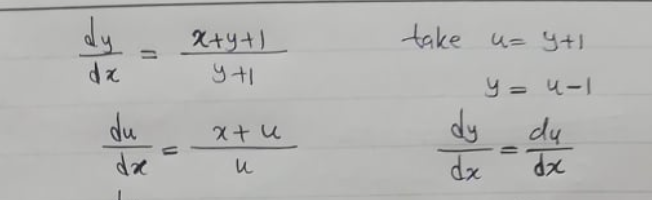 dy/dx = (x+y+1)/(y+1)
take u = y+1
y = u-1
du/dx = (x+u)/u
dy/dx = du/dx